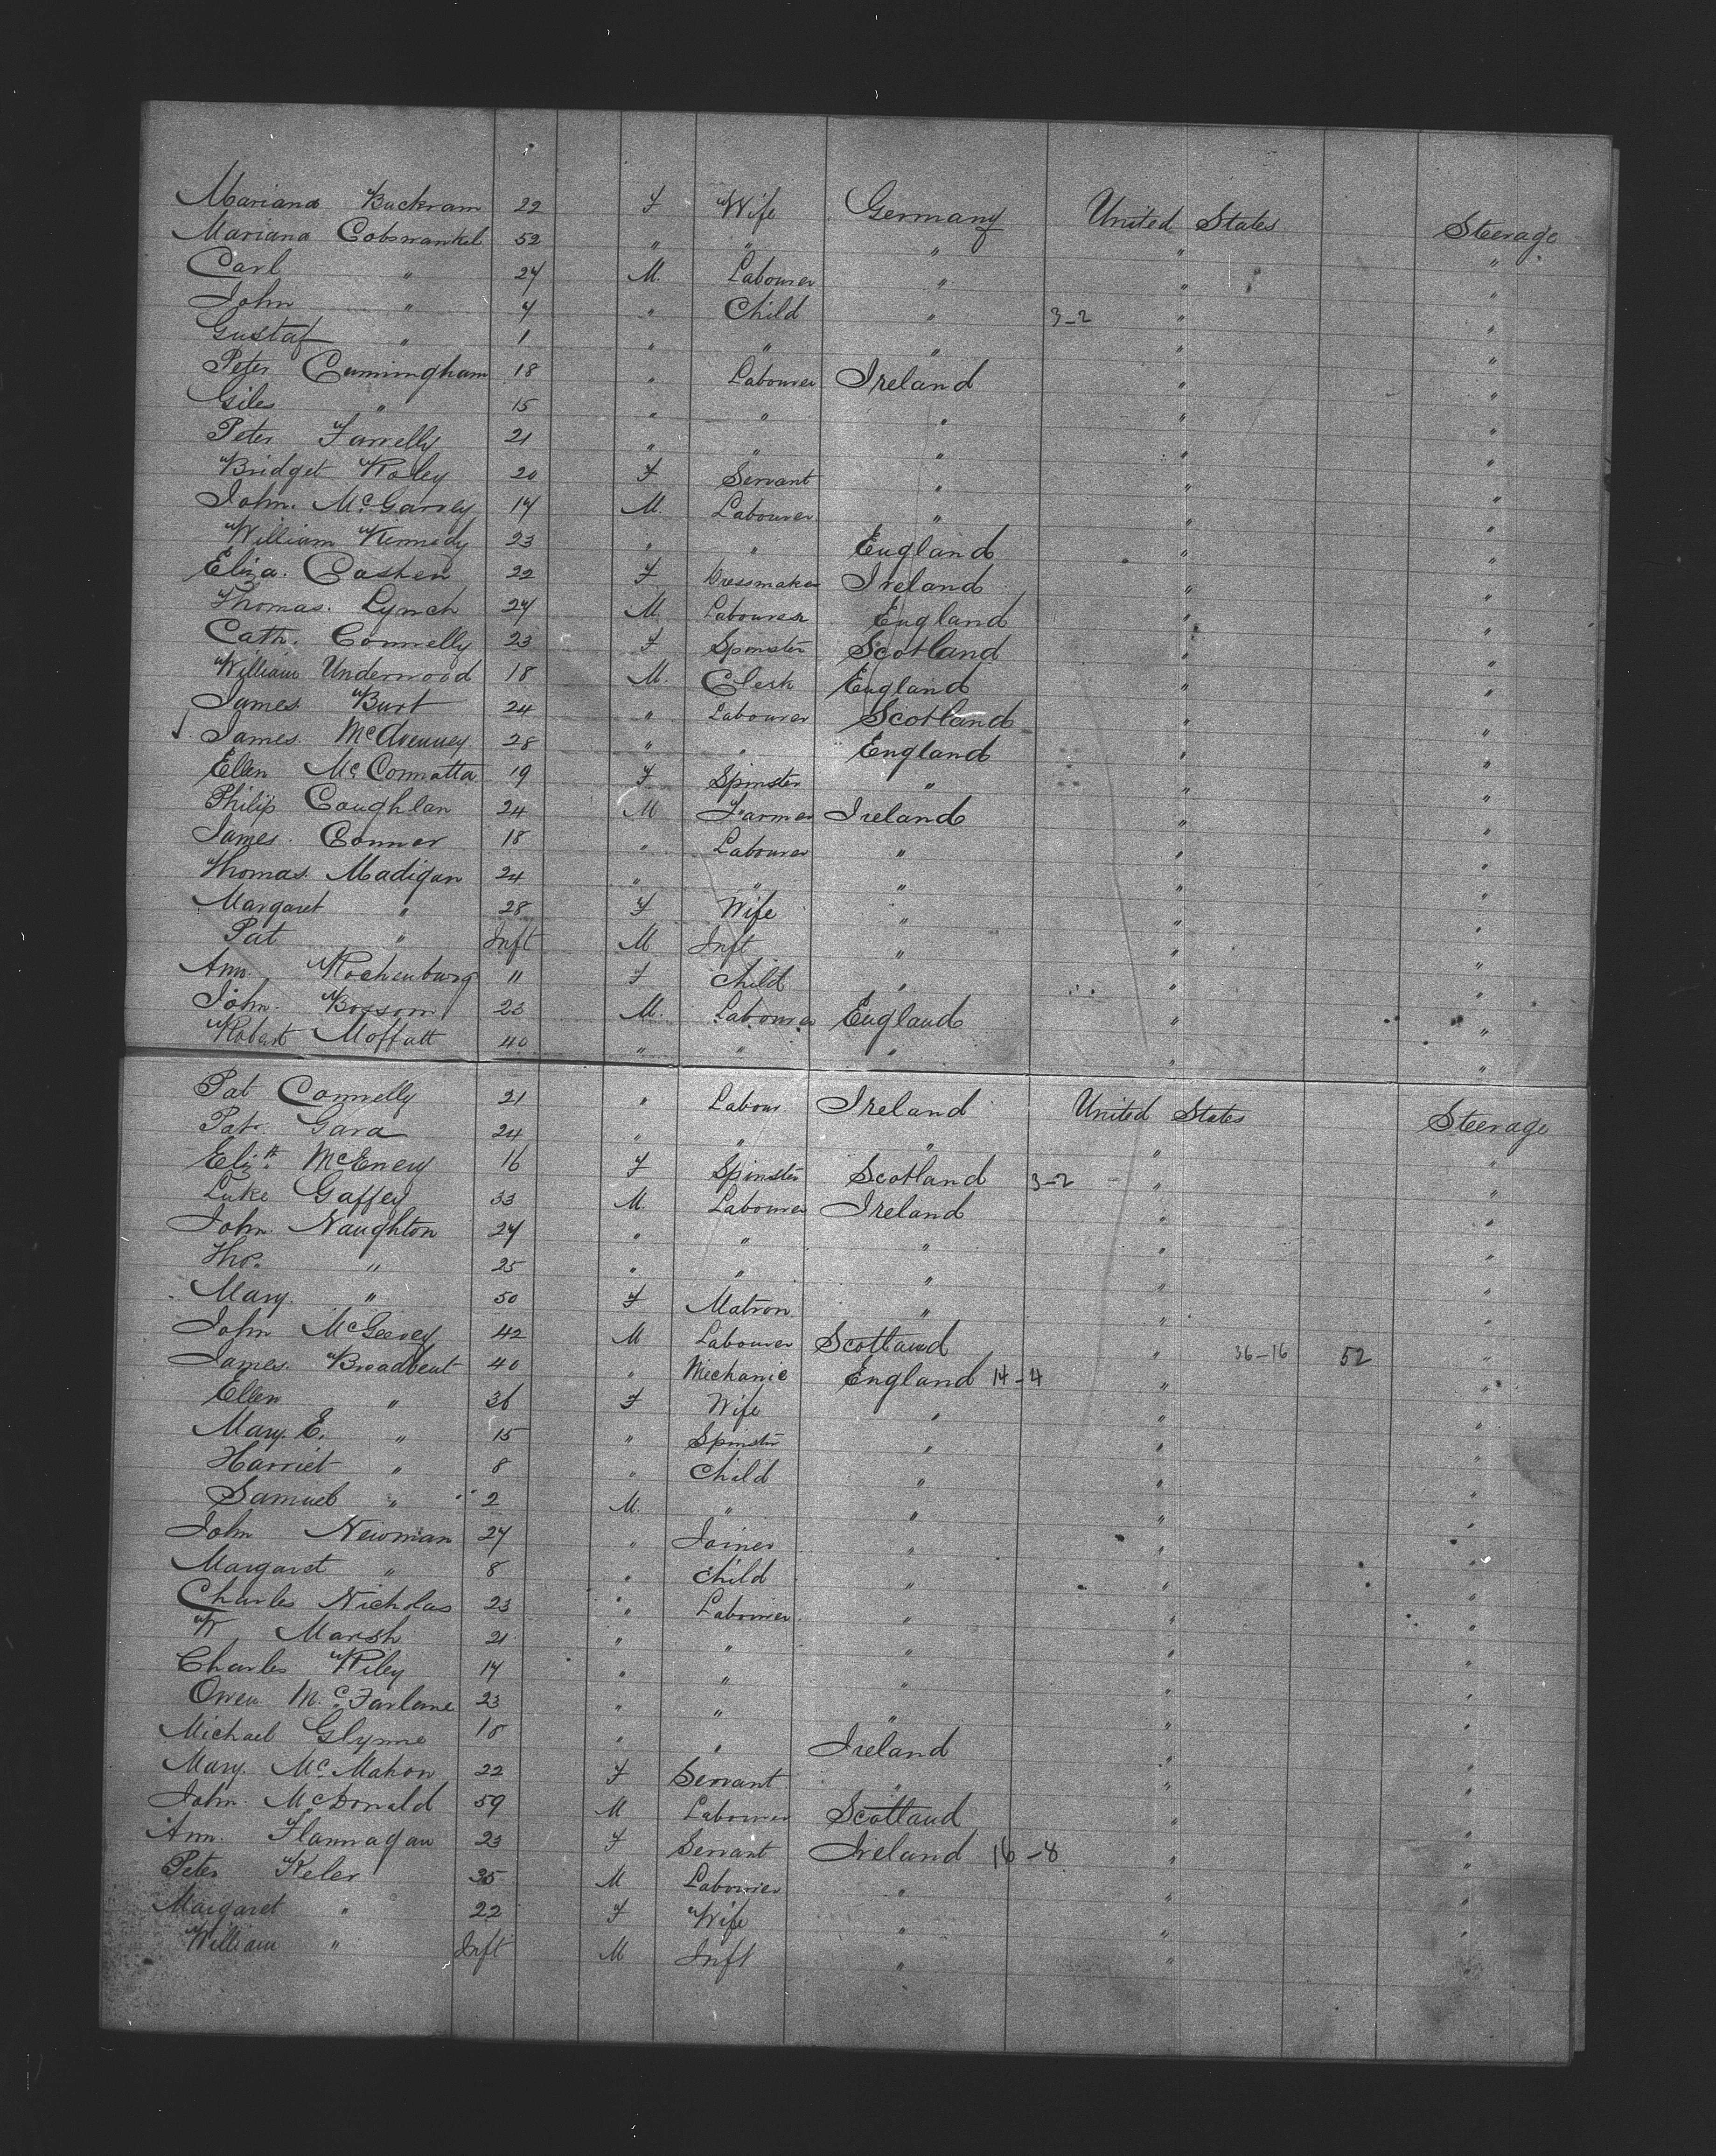 Mariana Buckram 22 F Wife Germany United States Steerage
Mariana Cobswankel 52 " " " " "
Carl " 24 M. Labourer " " "
John " 4 " Child " 3-2 " "
Gustaf " 1 " " " " "
Peter Cunningham 18 " Labourer Ireland " "
Giles " 15 " " " " "
Peter Farrelly 21 " " " " "
Bridget Roley 20 F Servant " " "
John. McGarvey 14 M. Labourer " " "
William Kennedy 23 " " England " "
Eliza. Cashen 22 F Dressmaker Ireland " "
Thomas. Lynch 24 M. Labourer England " "
Cath. Connelly 23 F Spinster Scotland " "
William Underwood 18 M. Clerk England " "
James Burt 24 " Labourer Scotland " "
James. McAvenney 28 " " England " "
Ellen McConnatta 19 F Spinster " " "
Philip Coughlan 24 M Farmer Ireland " "
James. Connor 18 " Labourer " " "
Thomas. Madigan 24 " " " " "
Margaret " 28 F Wife " " "
Pat " Inft M Inft " " "
Ann Rochenburg 11 F Child " " "
John. Bossom 23 M. Labourer England " "
Robert Moffatt 40 " " " " "
Pat Connelly 21 " Labour Ireland United States Steerage
Pat. Gara 24 " " " " "
Elizth McEnery 16 F Spinster Scotland 3-2 " "
Luke Gaffey 33 M. Labourer Ireland " "
John. Naughton 24 " " " " "
Thos. " 25 " " " " "
Mary. " 50 F Matron " " "
John McGeevey 42 M Labourer Scotland " 36-16 52 "
James. Broadbent 40 " Mechanic England 14-4 " "
Ellen " 36 F Wife " " "
Mary. E. " 15 " Spinster " " "
Harriet " 8 " Child " " "
Samuel " 2 M. " " " "
John Newman 27 " Joiner " " "
Margaret " 8 " Child " " "
Charles Nicholas 23 " Labourer " " "
W Marsh 21 " " " " "
Charles Riley 14 " " " " "
Owen McFarlane 23 " " " " "
Michael Glynne 18 " " Ireland " "
Mary. McMahon 22 F Servant " " "
John. McDonald 59 M Labourer Scotland " "
Ann. Flannagan 23 F Servant Ireland 16-8 " "
Peter Keler 35 M Labourer " " "
Margaret " 22 F Wife " " "
William " Inft M Inft " " "